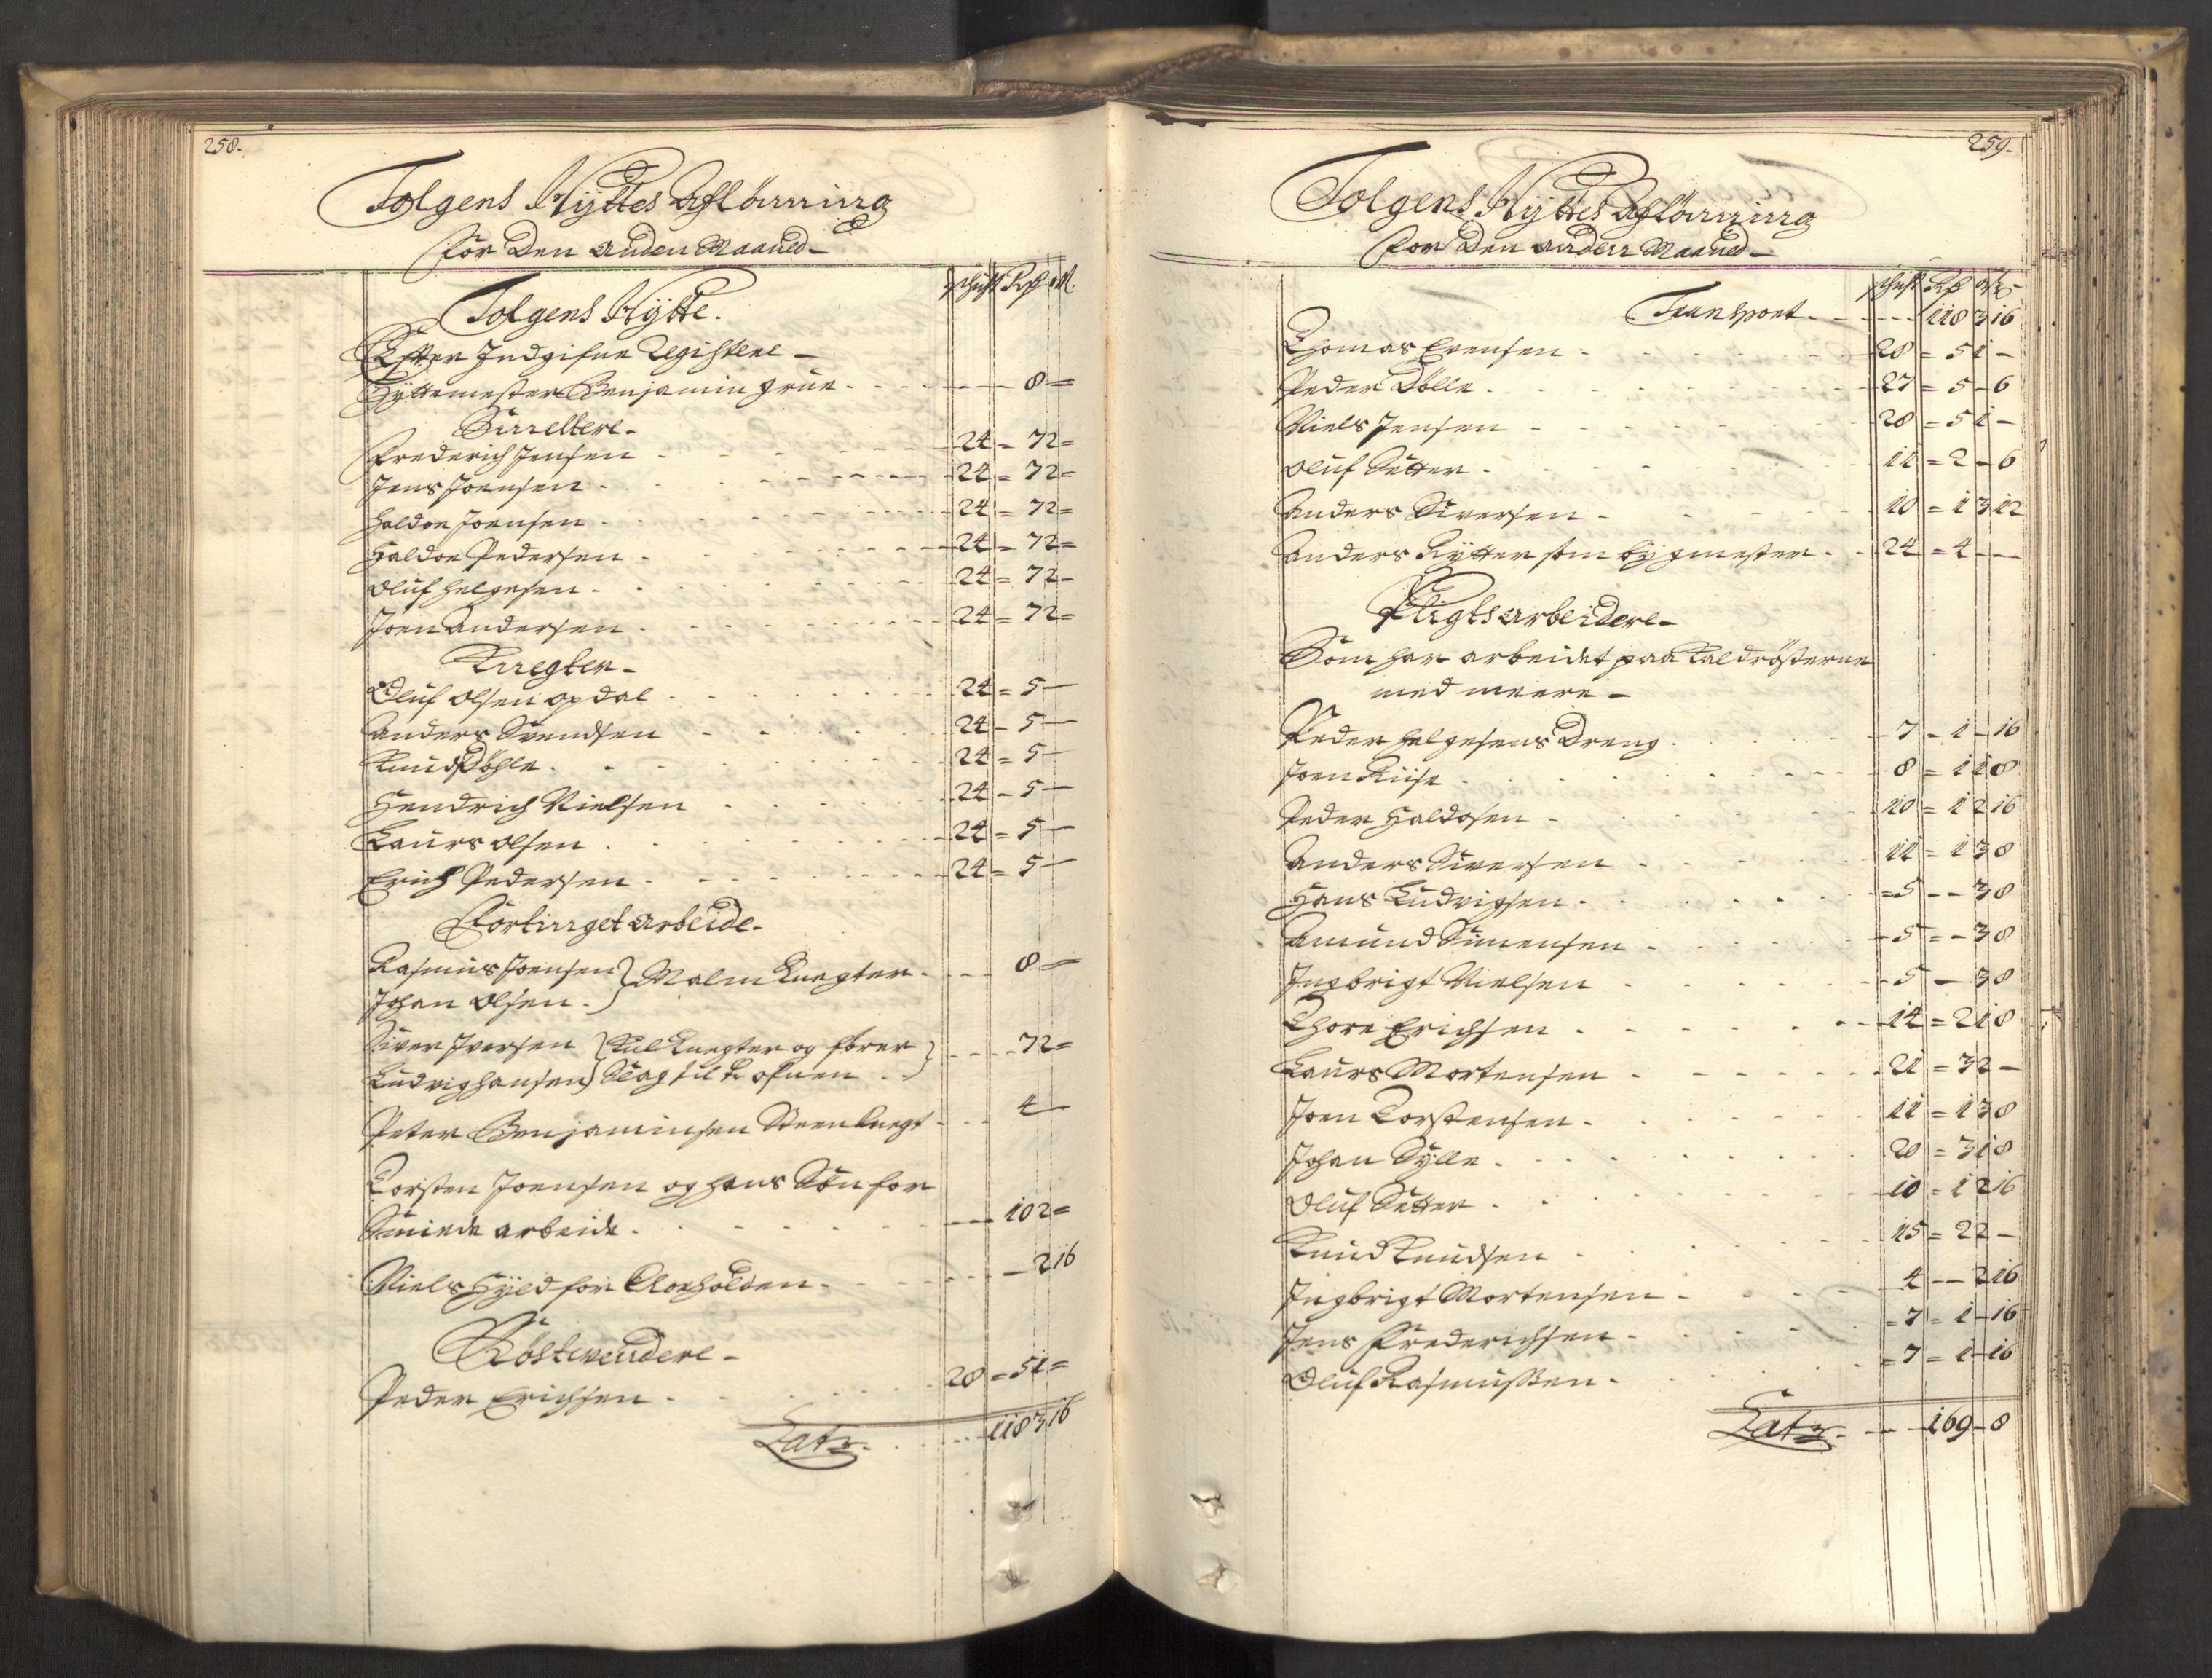 258.
Tolgens Hyttes Aflønning
for Den anden Maaned
schift Rdr
Tolgens Hytte.
Efter Indgifne Registere
Hyttemester Benjamin Grue. 8 =
Smeltere
Frederich Jensen 24 = 7 2 =
Jens Joensen 24 = 7 2 =
Haldoe Joensen 24 = 7 2 =
Haldoe Pedersen 24 = 7 2 =
Oluf Helgesen 24 = 7 2 –
Joen Andersen 24 = 7 2 =
Knegter
Oluf Olsen Opdal 24 = 5 –
Anders Svendsen 24 – 5 –
Knud Døhle 24 = 5 –
Hendrich Nielsen 24 – 5 –
Laurs Olsen 24 = 5 –
Erich Pedersen 24 = 5 –
Fortinget Arbeide
Rasmus Joensen } Malm Knegter 8 =
Johan Olsen
Siver Iversen } Kul Knegter og fører 7 2 =
Ludvig Hansen } Slag til ofnen
Peter Benjaminsen Steen Knegt 4 –
Torsten Joensen og hans Søn for
Smiede arbeide 10 2 =
Niels Hyld for – 2 16
Røstevendere
Peder Erichsen 28 = 5 1 =
Latr. 118 3 16
259.
Tolgens Hyttes Aflønning
for Den anden Maaned
schift Rdr
Transport 118 3 16
Thomas Evensen 28 = 5 1 –
Peder Dølle 27 = 5 – 6
Niels Jensen 28 = 5 1 –
Oluf Sætter 11 = 2 – 6
Anders Siversen 10 = 1 3 12
Anders Rytter som bygmester 24 = 4 – –
Pligtsarbeidere
Som har arbeidet paa Kaldrøsterne
med meere
Peder Helgesens Dreng 7 – 1 – 16
Joen Riise 8 = 1 1 8
Peder Haldosen 10 = 1 2 16
Anders Siversen 11 = 1 3 8
Hans Ludvigsen 5 – – 3 8
Amund Simensen 5 = – 3 8
Ingbrigt Nielsen 5 – 3 8
Thore Erichsen 14 = 2 1 8
Laurs Mortensen 21 = 3 2 –
Joen Torstensen 11 = 1 3 8
Johan Sylle 20 = 3 1 8
Oluf Sætter 10 = 1 2 16
Knud Knudsen 15 = 2 2 –
Ingbrigt Mortensen 4 – – 2 16
Jens Frederichsen 7 = 1 – 16
Oluf Rasmussen 7 = 1 – 16
Latr. 169 – 8